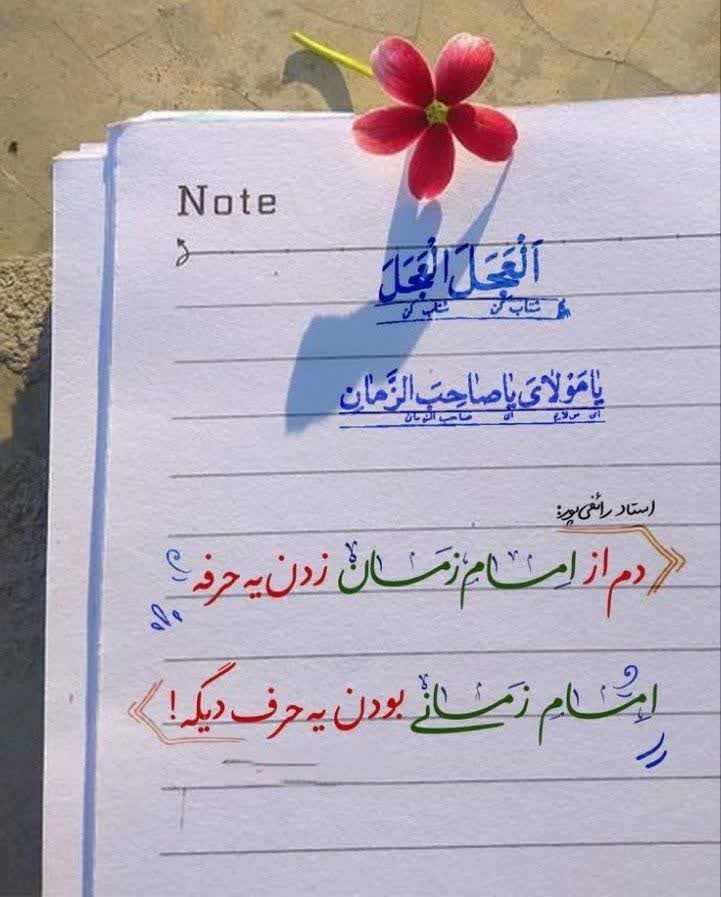 Note
اَلْعَجَلَ الْعَجَلَ
شتاب کن شتاب کن
یا مَوْلایَ یا صاحِبَ الزَّمانِ
ای مولایم ای صاحب الزمان
استاد رائفی‌پور:
«دم از امامِ زمان زدن یه حرفه
امامِ زمانی بودن یه حرف دیگه!»